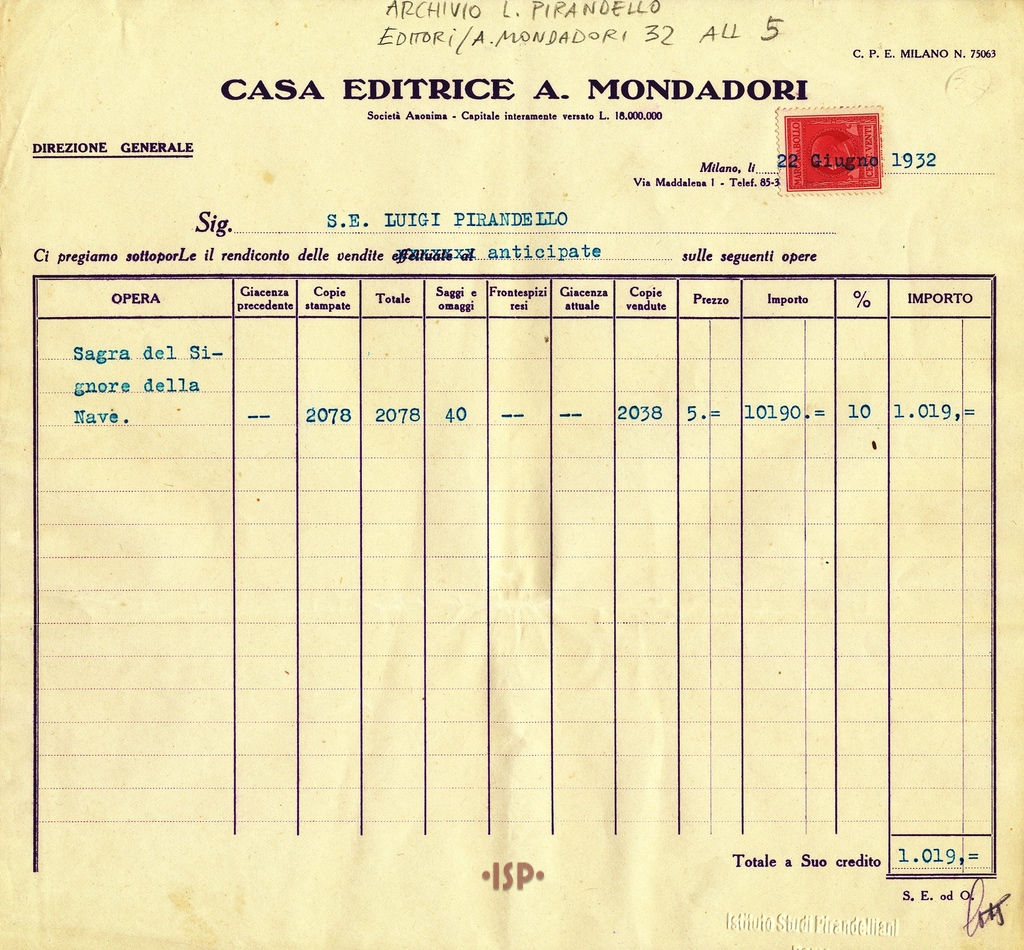 ARCHIVIO L. PIRANDELLO
EDITORI/A. MONDADORI 32 ALL 5
C. P. E. MILANO N. 75063
CASA EDITRICE A. MONDADORI
Società Anonima - Capitale interamente versato L. 18.000.000
DIREZIONE GENERALE
MARCA DA BOLLO
Milano, li 22 Giugno 1932
Via Maddalena 1 - Telef. 85-3
Sig. S.E. LUIGI PIRANDELLO
Ci pregiamo sottoporLe il rendiconto delle vendite anticipate sulle seguenti opere
OPERA Giacenza precedente Copie stampate Totale Saggi e omaggi Frontespizi resi Giacenza attuale Copie vendute Prezzo Importo % IMPORTO
Sagra del Si-
gnore della
Nave. -- 2078 2078 40 -- -- 2038 5.= 10190.= 10 1.019,=
Totale a Suo credito 1.019,=
·ISP·
S. E. od O.
Istituto Studi Pirandelliani